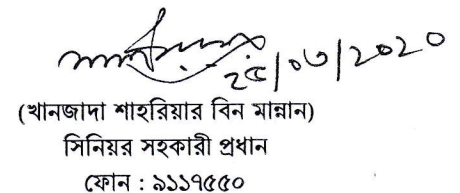 ২৫/০৩/২০২০
(খানজাদা শাহরিয়ার বিন মান্নান)
সিনিয়র সহকারী প্রধান
ফোন : ৯১১৭৫৫০